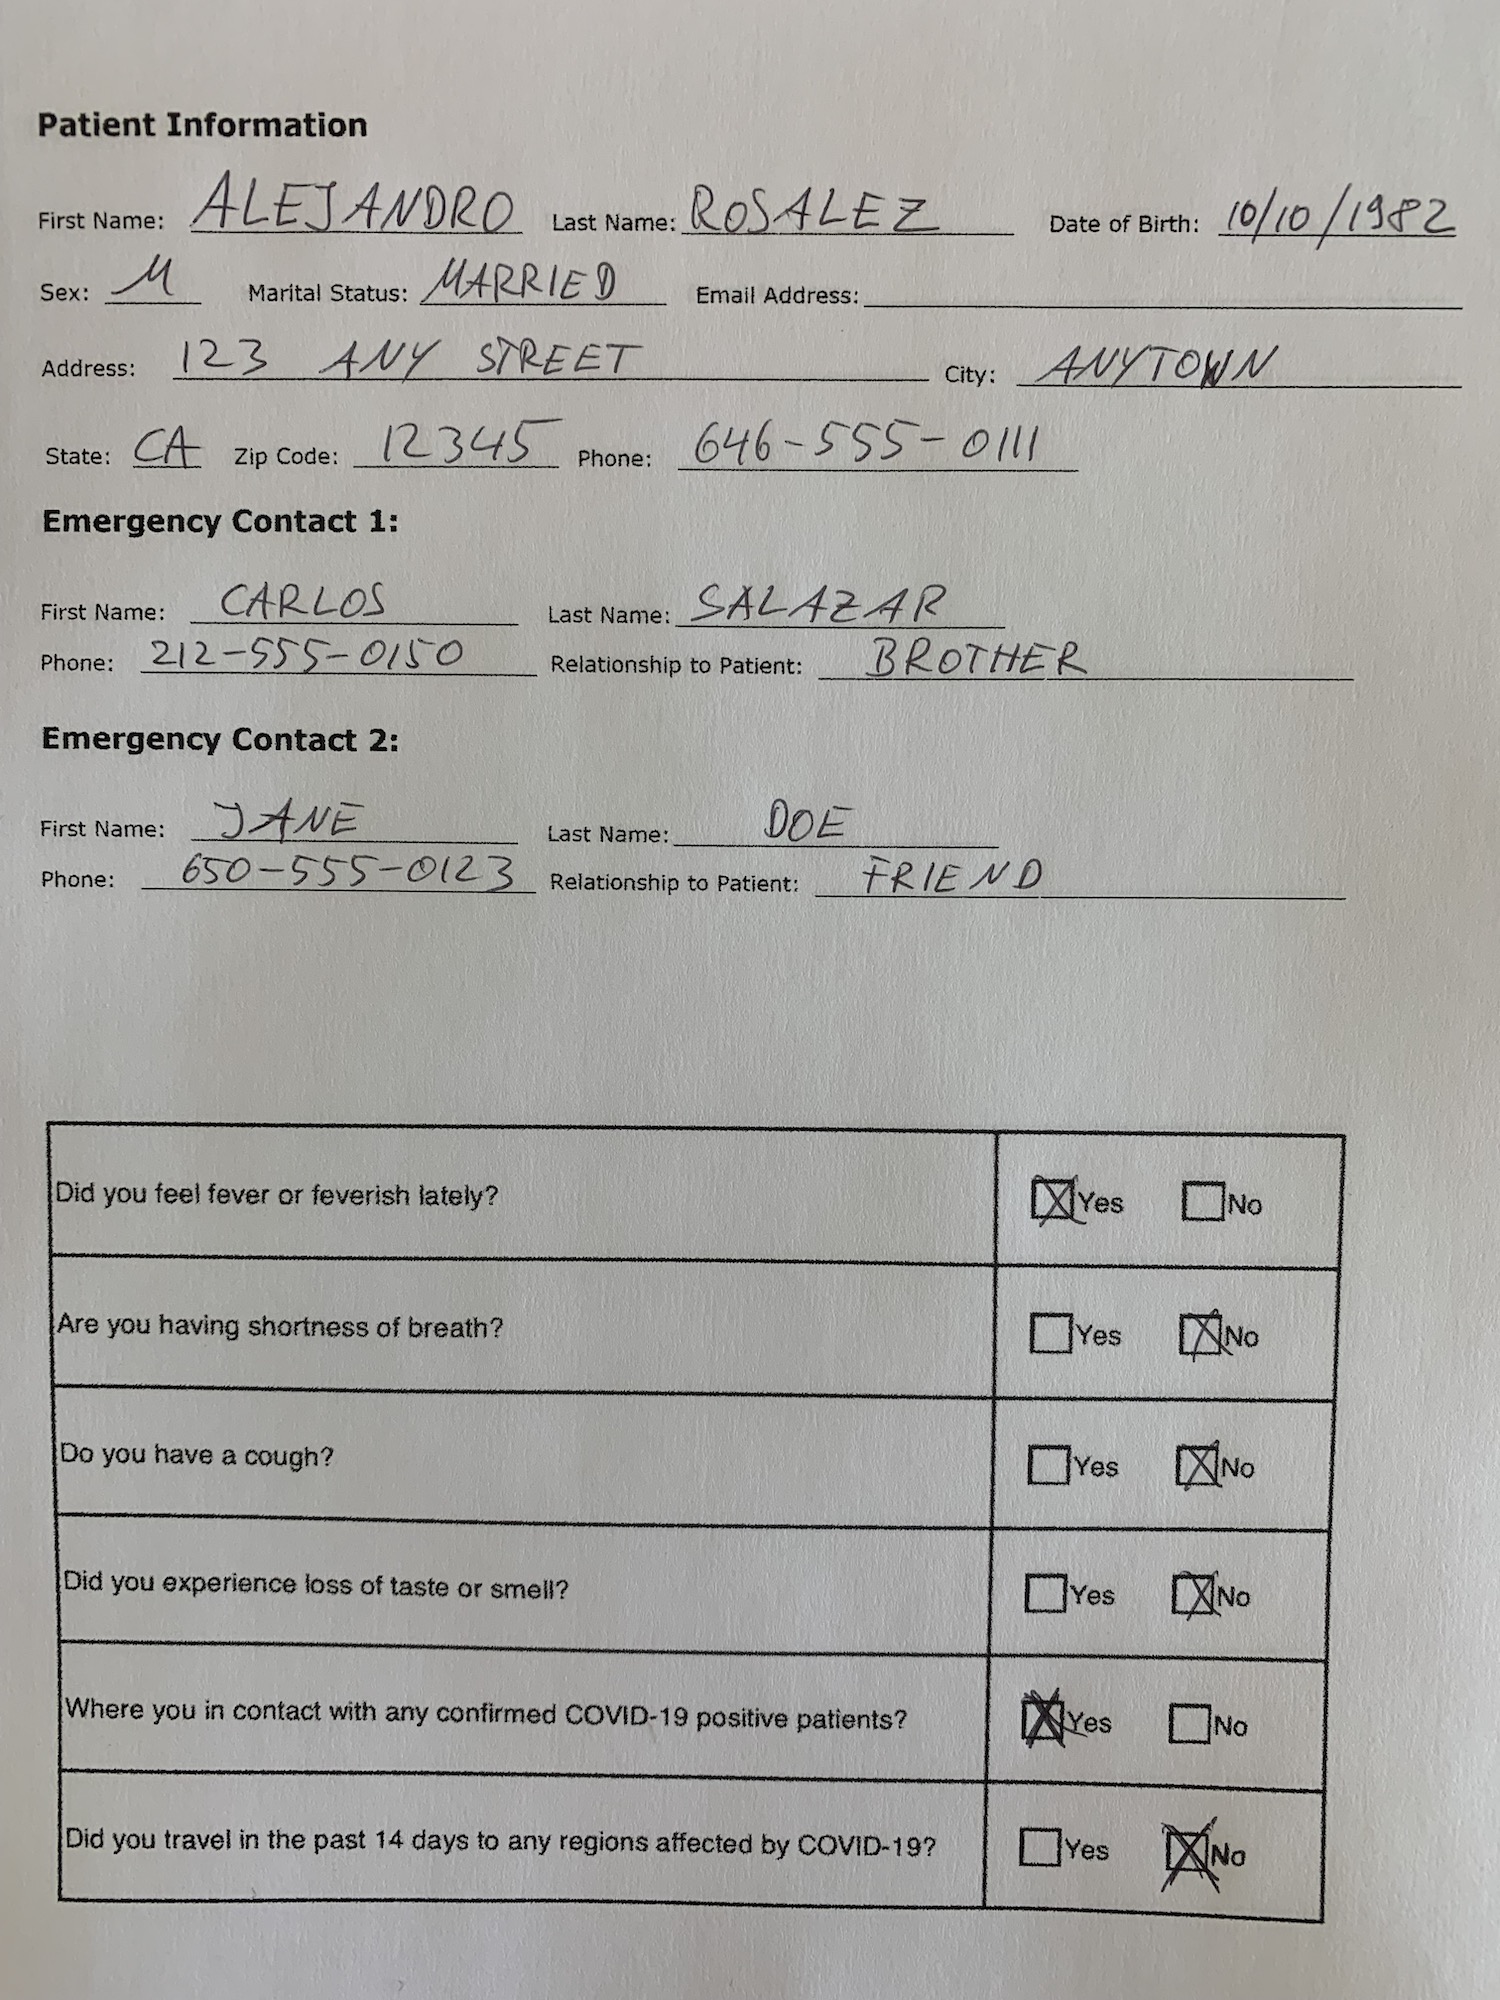 Patient Information
First Name: ALEJANDRO Last Name: ROSALEZ Date of Birth: 10/10/1982
Sex: M Marital Status: MARRIED Email Address:
Address: 123 ANY STREET City: ANYTOWN
State: CA Zip Code: 12345 Phone: 646-555-0111
Emergency Contact 1:
First Name: CARLOS Last Name: SALAZAR
Phone: 212-555-0150 Relationship to Patient: BROTHER
Emergency Contact 2:
First Name: JANE Last Name: DOE
Phone: 650-555-0123 Relationship to Patient: FRIEND
Did you feel fever or feverish lately? Yes No
Are you having shortness of breath? Yes No
Do you have a cough? Yes No
Did you experience loss of taste or smell? Yes No
Where you in contact with any confirmed COVID-19 positive patients? Yes No
Did you travel in the past 14 days to any regions affected by COVID-19? Yes No